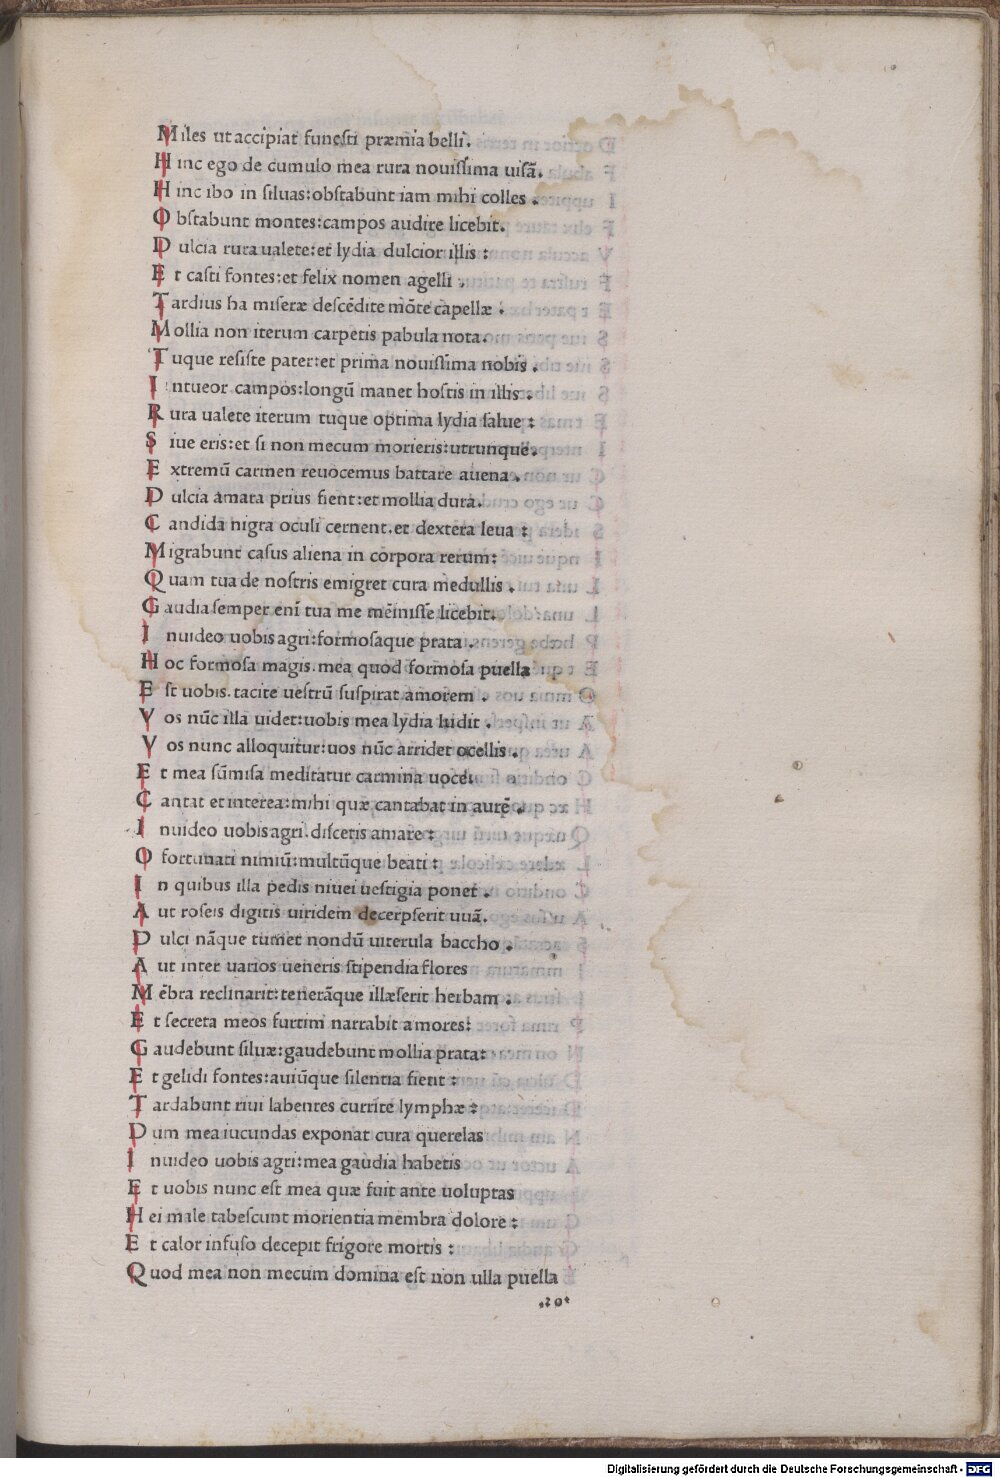 Miles ut accipiat funesti præmia belli.
Hinc ego de cumulo mea rura nouissima uisã.
Hinc ibo in siluas:obstabunt iam mihi colles .
Obstabunt montes:campos audire licebit.
Dulcia rura ualete:et lydia dulcior illis :
Et casti fontes:et felix nomen agelli .
Tardius ha miseræ descẽdite mõte capellæ .
Mollia non iterum carpetis pabula nota.
Tuque resiste pater:et prima nouissima nobis .
Intueor campos:longũ manet hostis in illis .
Rura ualete iterum tuque optima lydia salue :
Siue eris:et si non mecum morieris:utrunque.
Extremũ carmen reuocemus battare auena.
Dulcia amara prius fient:et mollia dura.
Candida nigra oculi cernent.et dextera leua :
Migrabunt casus aliena in corpora rerum:
Quam tua de nostris emigret cura medullis .
Gaudia semper enĩ tua me mẽinisse licebit.
Inuideo uobis agri:formosaque prata .
Hoc formosa magis.mea quod formosa puella
Est uobis.tacite uestrũ suspirat amorem .
Vos nũc illa uidet:uobis mea lydia ludit .
Vos nunc alloquitur:uos nũc arridet ocellis .
Et mea sũmisa meditatur carmina uoce:
Cantat et interea:mihi quæ cantabat in aurẽ .
Inuideo uobis agri.discetis amare :
O fortunati nimiũ:multũque beati :
In quibus illa pedis niuei uestigia ponet .
Aut roseis digitis uiridem decerpserit uuã.
Dulci nãque tumet nondũ uiterula baccho .
Aut inter uarios ueneris stipendia flores
Mẽbra reclinarit:tenerãque illæserit herbam .
Et secreta meos furtim narrabit amores:
Gaudebunt siluæ:gaudebunt mollia prata:
Et gelidi fontes:auiũque silentia fient :
Tardabunt riui labentes currite lymphæ :
Dum mea iucundas exponat cura querelas
Inuideo uobis agri:mea gaudia habetis
Et uobis nunc est mea quæ fuit ante uoluptas
Hei male tabescunt morientia membra dolore :
Et calor infuso decepit frigore mortis :
Quod mea non mecum domina est non ulla puella
.20.
Digitalisierung gefördert durch die Deutsche Forschungsgemeinschaft - DFG